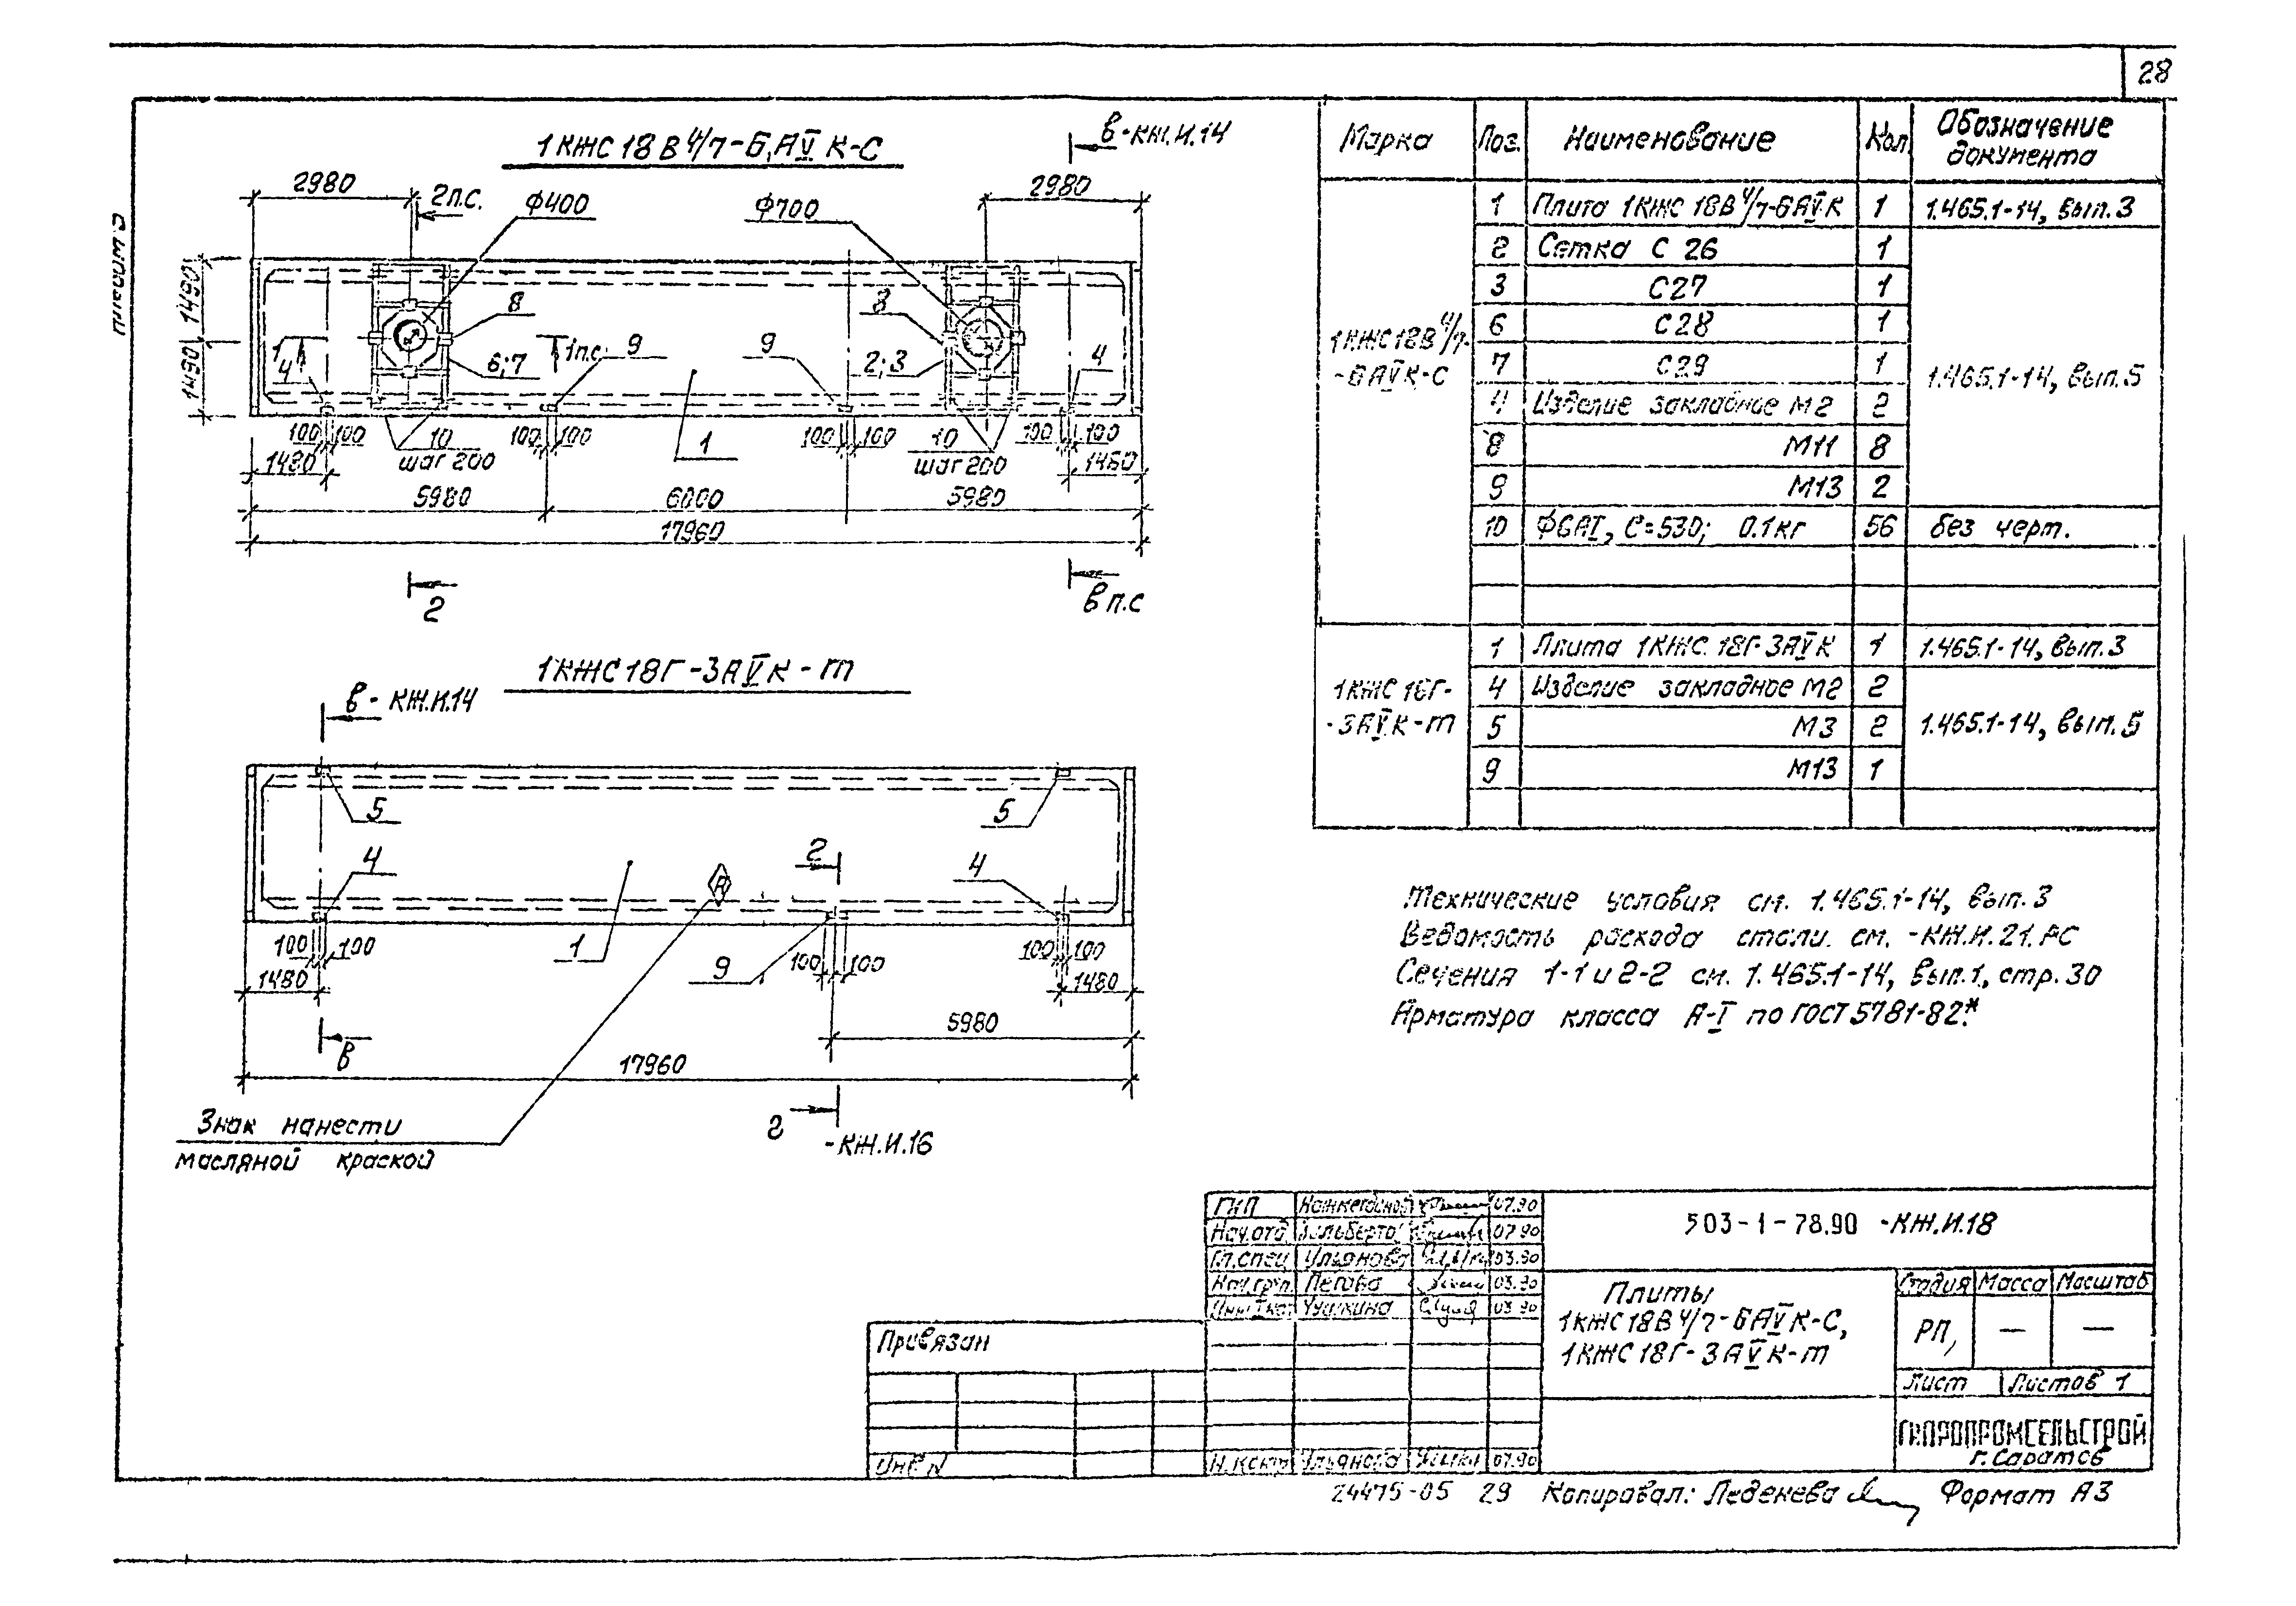 28
1КЖС18В4/7-6АVК-С
в-КЖ.И.14
2980
2п.с.
Ф400
Ф700
2980
1490
1490
8
8
1
4
6;7
1п.с.
9
9
2;3
4
100 100
10
100 100
1
100 100
10
100 100
шаг 200
шаг 200
1480
1480
5980
6000
5980
17960
2
в п.с
1КЖС18Г-3АVК-т
в-КЖ.И.14
5
5
4
2
4
100 100
1
9
100 100
100 100
1480
1480
5980
в
17960
2
-КЖ.И.16
Знак нанести
масляной краской
Марка Поз. Наименование Кол. Обозначение документа
1КЖС18В4/7-
-6АVК-С
1 Плита 1КЖС 18В4/7-6АVК 1 1.465.1-14, вып.3
2 Сетка С 26 1
3 С27 1
6 С28 1
7 С29 1
1.465.1-14, вып.5
4 Изделие закладное М2 2
8 М11 8
9 М13 2
10 Ф6АI, ℓ=530; 0.1кг 56 без черт.
1КЖС 18Г-
-3АVК-т
1 Плита 1КЖС 18Г-3АVК 1 1.465.1-14, вып.3
4 Изделие закладное М2 2
5 М3 2
1.465.1-14, вып.5
9 М13 1
Технические условия см. 1.465.1-14, вып.3
Ведомость расхода стали см. -КЖ.И.21.РС
Сечения 1-1 и 2-2 см. 1.465.1-14, вып.1, стр.30
Арматура класса А-I по ГОСТ 5781-82*.
ГИП 07.90
Нач.отд. 07.90
Гл.спец Ульянова 03.90
Нач.груп. Пегова 03.90
03.90
Н.контр Ульянова 07.90
503-1-78.90 -КЖ.И.18
Плиты
1КЖС18В4/7-6АVК-С,
1КЖС18Г-3АVК-т
Стадия Масса Масштаб
РП — —
Лист Листов 1
ГИПРОПРОМСЕЛЬСТРОЙ
г. Саратов
Привязан
Инв N
24475-05 29 Копировал: Леденева Формат А3